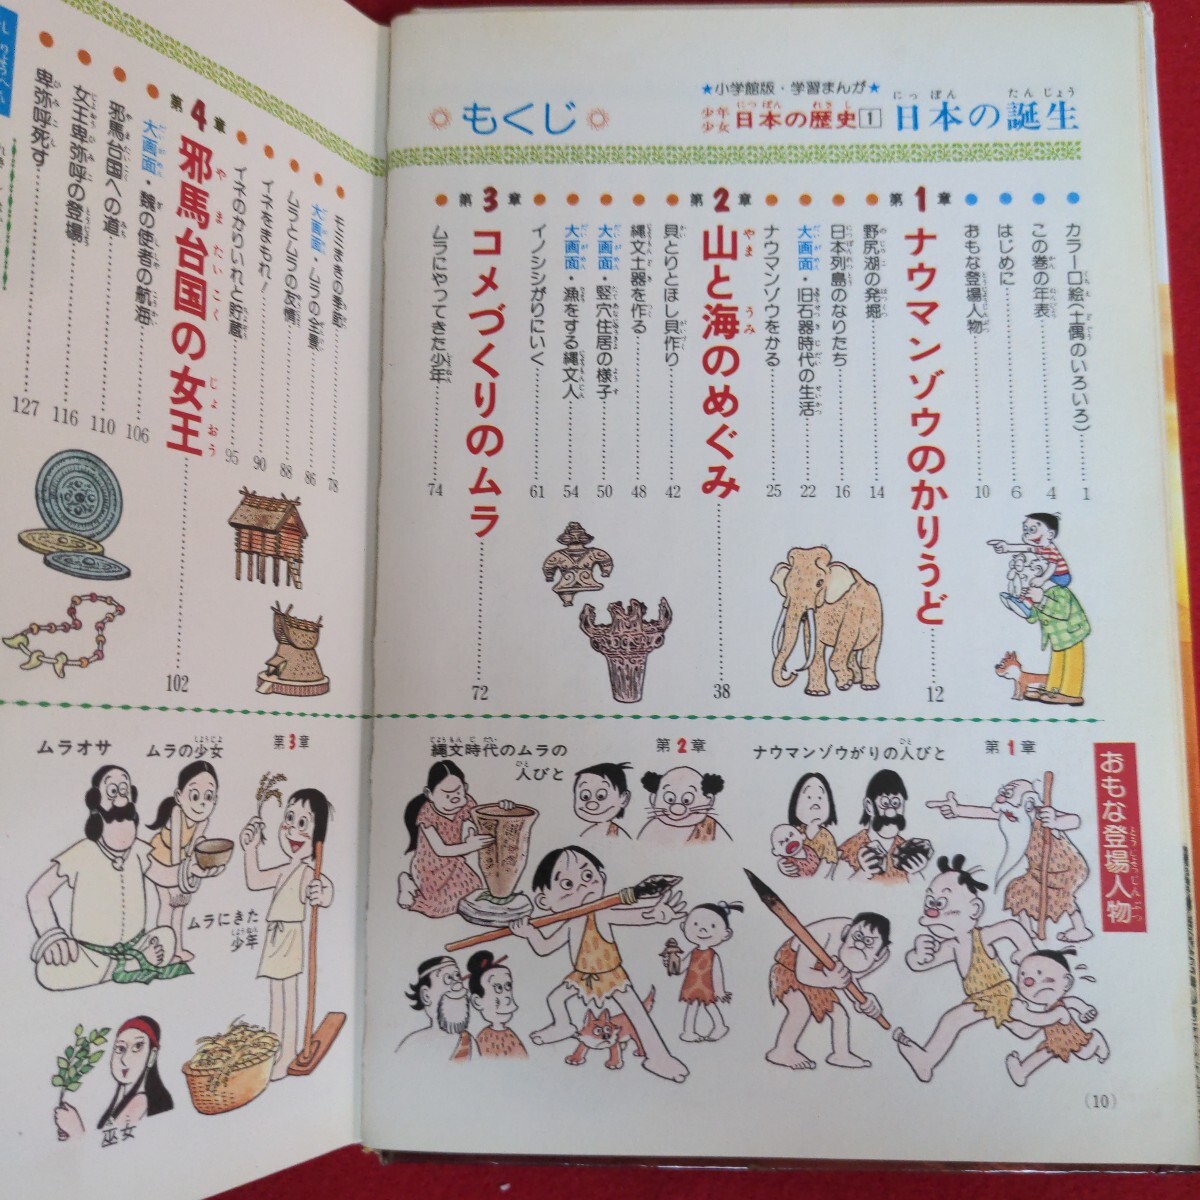 ★小学館版・学習まんが★
少年少女 日本の歴史 1 日本の誕生
もくじ
カラー口絵(土偶のいろいろ) 1
この巻の年表 4
はじめに 6
おもな登場人物 10
第1章 ナウマンゾウのかりうど 12
野尻湖の発掘 14
日本列島のなりたち 16
大画面・旧石器時代の生活 22
ナウマンゾウをかる 25
第2章 山と海のめぐみ 38
貝とりとほし貝作り 42
縄文土器を作る 48
大画面・竪穴住居の様子 50
大画面・漁をする縄文人 54
イノシシがりにいく 61
第3章 コメづくりのムラ 72
ムラにやってきた少年 74
78
大画面・ムラの全景 86
ムラとムラの友情 88
イネをまもれ! 90
イネのかりいれと貯蔵 95
第4章 邪馬台国の女王 102
大画面・魏の使者の航海 106
邪馬台国への道 110
女王卑弥呼の登場 116
卑弥呼死す 127
おもな登場人物
第1章
ナウマンゾウがりの人びと
第2章
縄文時代のムラの
人びと
第3章
ムラの少女
ムラオサ
ムラにきた
少年
巫女
(10)